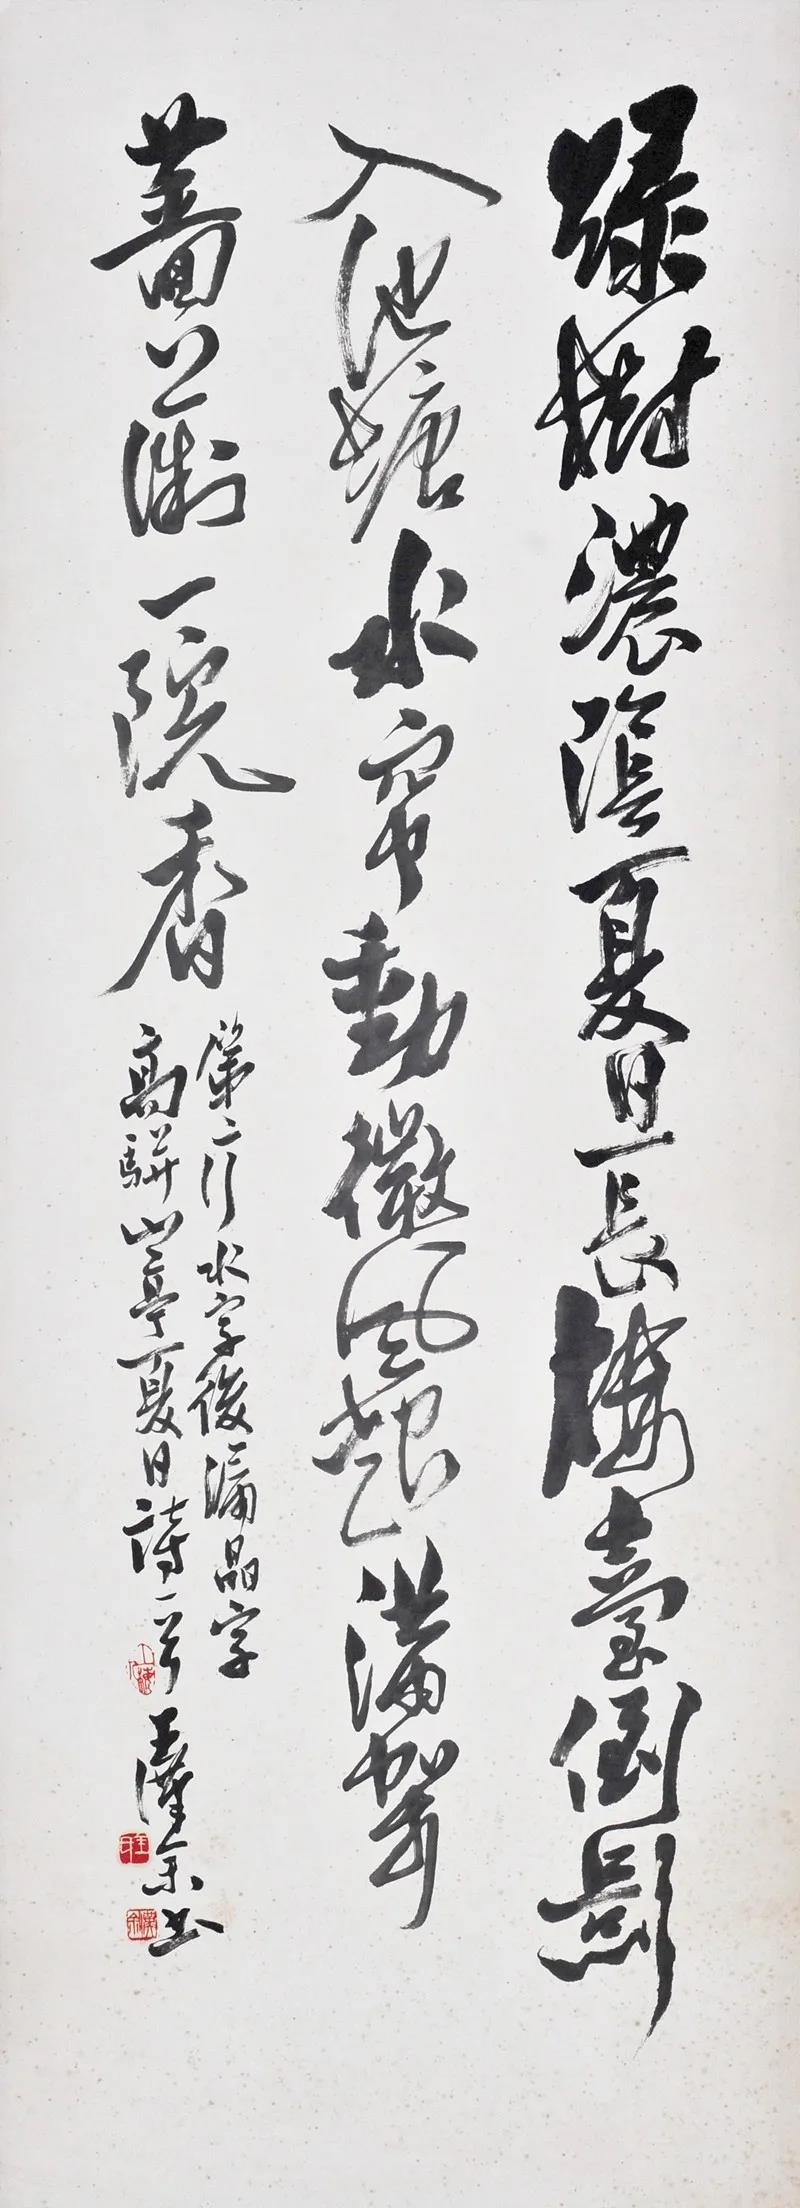 綠樹濃陰夏日長樓臺倒影
入池塘水帘動微風起滿架
薔薇一院香
第二行水字後漏晶字
高駢山亭夏日詩一首
王漢余书